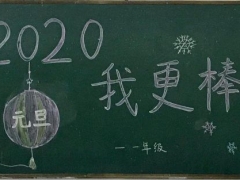 2020
元旦
我更棒
一一年级